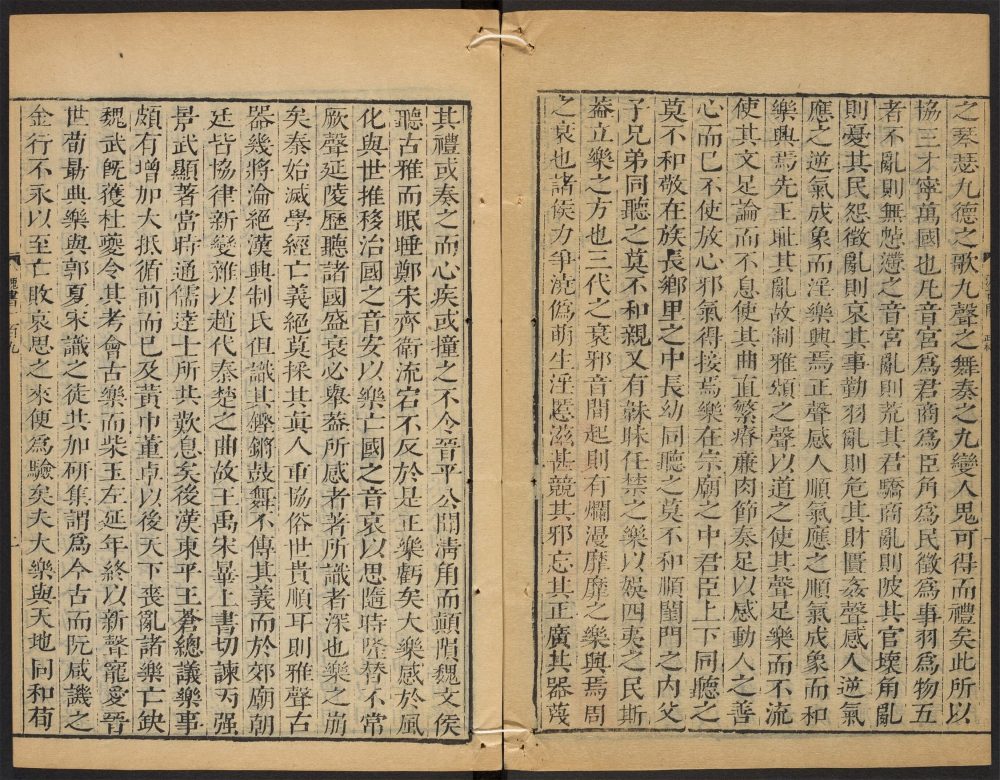 之琴瑟九德之歌九聲之舞奏之九變人鬼可得而禮矣此所以
協三才寧萬國也凡音宮爲君商爲臣角爲民徵爲事羽爲物五
者不亂則無怗懘之音宮亂則荒其君驕商亂則陂其官壞角亂
則憂其民怨徵亂則哀其事勤羽亂則危其財匱姦聲感人逆氣
應之逆氣成象而淫樂興焉正聲感人順氣應之順氣成象而和
樂興焉先王耻其亂故制雅頌之聲以道之使其聲足樂而不流
使其文足論而不息使其曲直繁瘠廉肉節奏足以感動人之善
心而已不使放心邪氣得接焉樂在宗廟之中君臣上下同聽之
莫不和敬在族長鄉里之中長幼同聽之莫不和順閨門之內父
子兄弟同聽之莫不和親又有韎昧任禁之樂以娛四夷之民斯
葢立樂之方也三代之衰邪音閒起則有爛漫靡靡之樂興焉周
之衰也諸侯力爭澆僞萌生淫慝滋甚競其邪忘其正廣其器蔑
其禮或奏之而心疾或撞之不令晉平公聞淸角而顛隕魏文侯
聽古雅而眠睡鄭宋齊衛流宕不反於是正樂虧矣大樂感於風
化與世推移治國之音安以樂亡國之音哀以思隨時隆替不常
厥聲延陵歷聽諸國盛衰必舉葢所感者著所識者深也樂之崩
矣秦始滅學經亡義絕莫採其眞人重協俗世貴順耳則雅聲古
器幾將淪絕漢興制氏但識其鏗鏘鼓舞不傳其義而於郊廟朝
廷皆協律新變雜以趙代秦楚之曲故王禹宋曅上書切諫丙强
景武顯著當時通儒達士所共歎息矣後漢東平王蒼總議樂事
頗有增加大抵循前而已及黃巾董卓以後天下喪亂諸樂亡缺
魏武旣獲杜夔令其考會古樂而柴玉左延年終以新聲寵愛晉
世荀勗典樂與郭夏宋識之徒共加研集謂爲合古而阮咸譏之
金行不永以至亡敗哀思之來便爲驗矣夫大樂與天地同和苟
魏書一百九